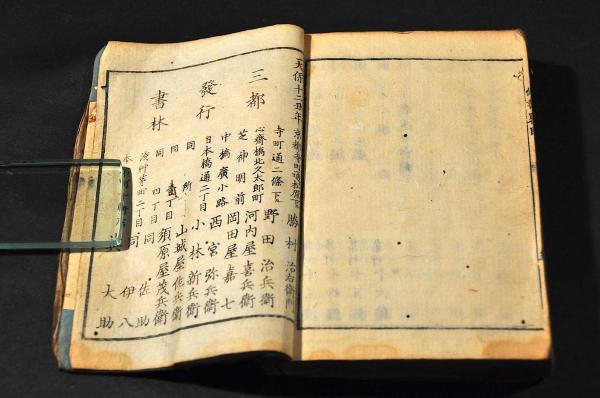 天保十二丑年 京都寺町通松原下 勝村治右衛門
三都
發行
書林
寺町通二條下 野田治兵衛
心齋橋北久太郎町 河内屋喜兵衛
芝神明前 岡田屋嘉七
中橋廣小路 西宮弥兵衛
日本橋通二丁目 小林新兵衛
同所 山城屋佐兵衛
同壹丁目 須原屋茂兵衛
同四丁目 同佐助
淺艸茅町二丁目 同伊八
本 同 大助